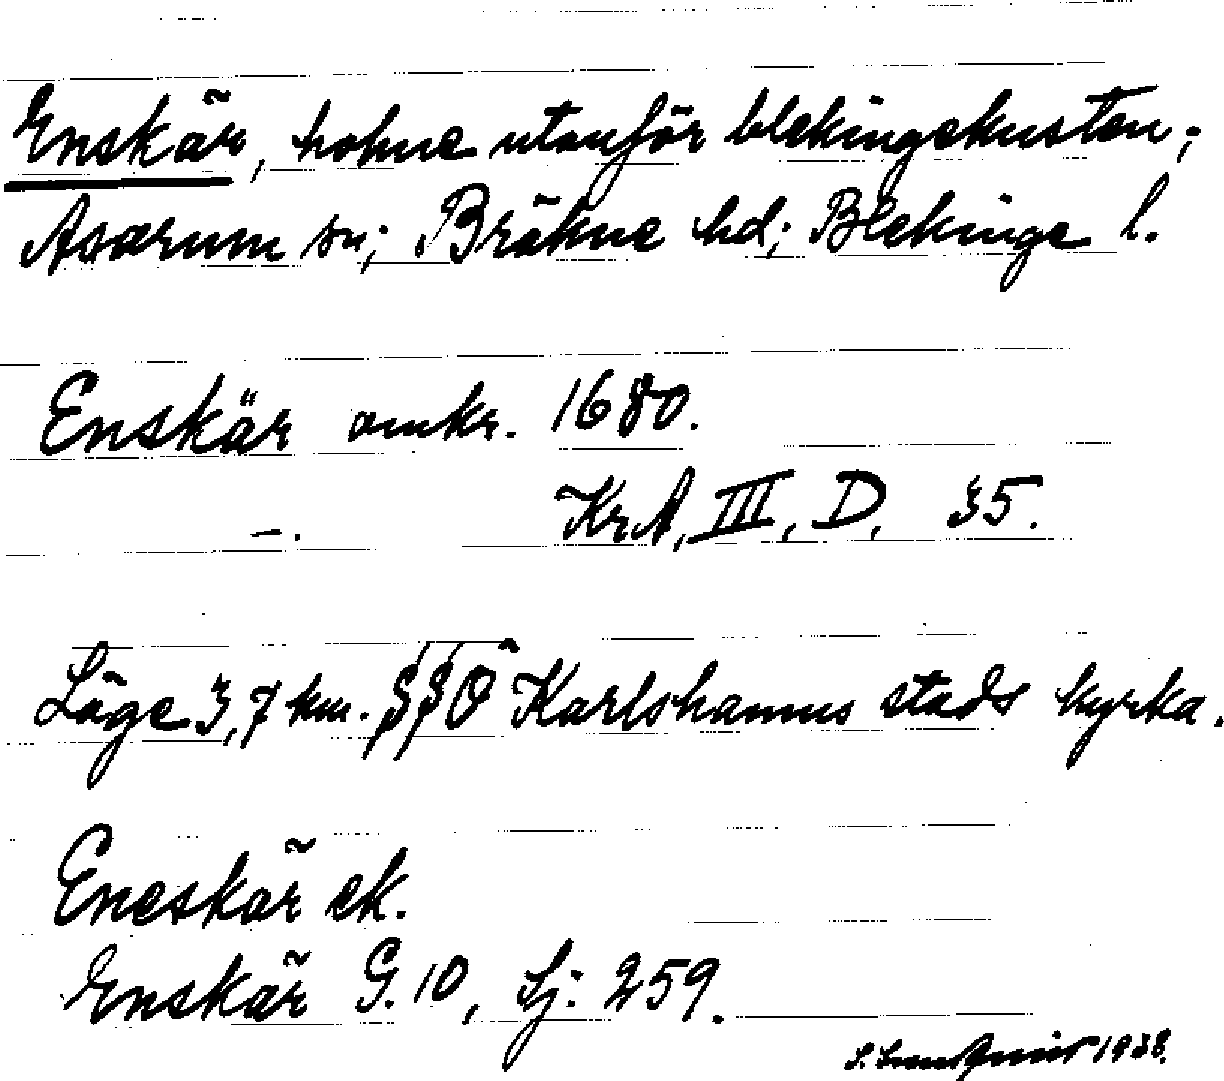 Enskär, holme utanför blekingekusten;
Asarum sn; Bräkne hd; Blekinge l.
Enskär omkr. 1680.
KrA, III, D, 35.
Läge 3,7 km. SSO Karlshamns stads kyrka.
Eneskär ek.
Enskär G. 10, Lj: 259.
1938.